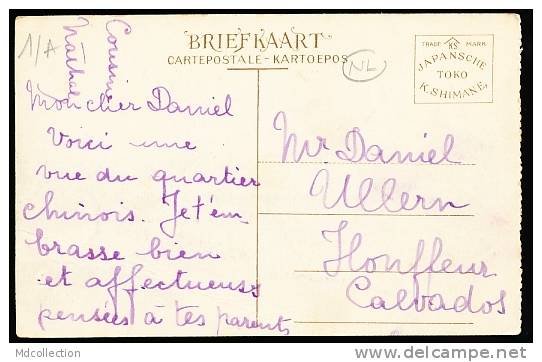 BRIEFKAART
CARTEPOSTALE - KARTOEPOS
TRADE KS MARK
JAPANSCHE
TOKO
K. SHIMANE.
1/A
NL
Cousin
Mon cher Daniel
Voici une
vue du quartier
chinois. Je t'em
brasse bien
et affectueuses
pensées à tes parents
Mr Daniel
Ullern
Honfleur
Calvados
MDCollection
www.delcampe.net